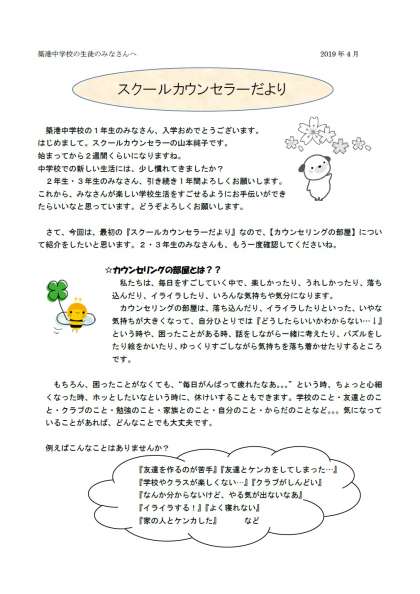 築港中学校の生徒のみなさんへ 2019年4月
スクールカウンセラーだより
築港中学校の１年生のみなさん、入学おめでとうございます。
はじめまして。スクールカウンセラーの山本純子です。
始まってから２週間くらいになりますね。
中学校での新しい生活には、少し慣れてきましたか？
２年生・３年生のみなさん、引き続き１年間よろしくお願いします。
これから、みなさんが楽しい学校生活をすごせるようにお手伝いができ
たらいいなと思っています。どうぞよろしくお願いします。
さて、今回は、最初の『スクールカウンセラーだより』なので、【カウンセリングの部屋】につい
て紹介をしたいと思います。２・３年生のみなさんも、もう一度確認してくださいね。
☆カウンセリングの部屋とは？？
私たちは、毎日をすごしていく中で、楽しかったり、うれしかったり、落ち
込んだり、イライラしたり、いろんな気持ちや気分になります。
カウンセリングの部屋は、落ち込んだり、イライラしたりといった、いやな
気持ちが大きくなって、自分ひとりでは『どうしたらいいかわからない…！』
という時や、困ったことがある時、話をしながら一緒に考えたり、パズルをし
たり絵をかいたり、ゆっくりすごしながら気持ちを落ち着かせたりするところ
です。
もちろん、困ったことがなくても、“毎日がんばって疲れたなあ。。。”という時、ちょっと心細
くなった時、ホッとしたいなという時に、休けいすることもできます。学校のこと・友達とのこ
と・クラブのこと・勉強のこと・家族とのこと・自分のこと・からだのことなど。。。気になって
いることがあれば、どんなことでも大丈夫です。
例えばこんなことはありませんか？
『友達を作るのが苦手』『友達とケンカをしてしまった…』
『学校やクラスが楽しくない…』『クラブがしんどい』
『なんか分からないけど、やる気が出ないなあ』
『イライラする！』『よく寝れない』
『家の人とケンカした』 など